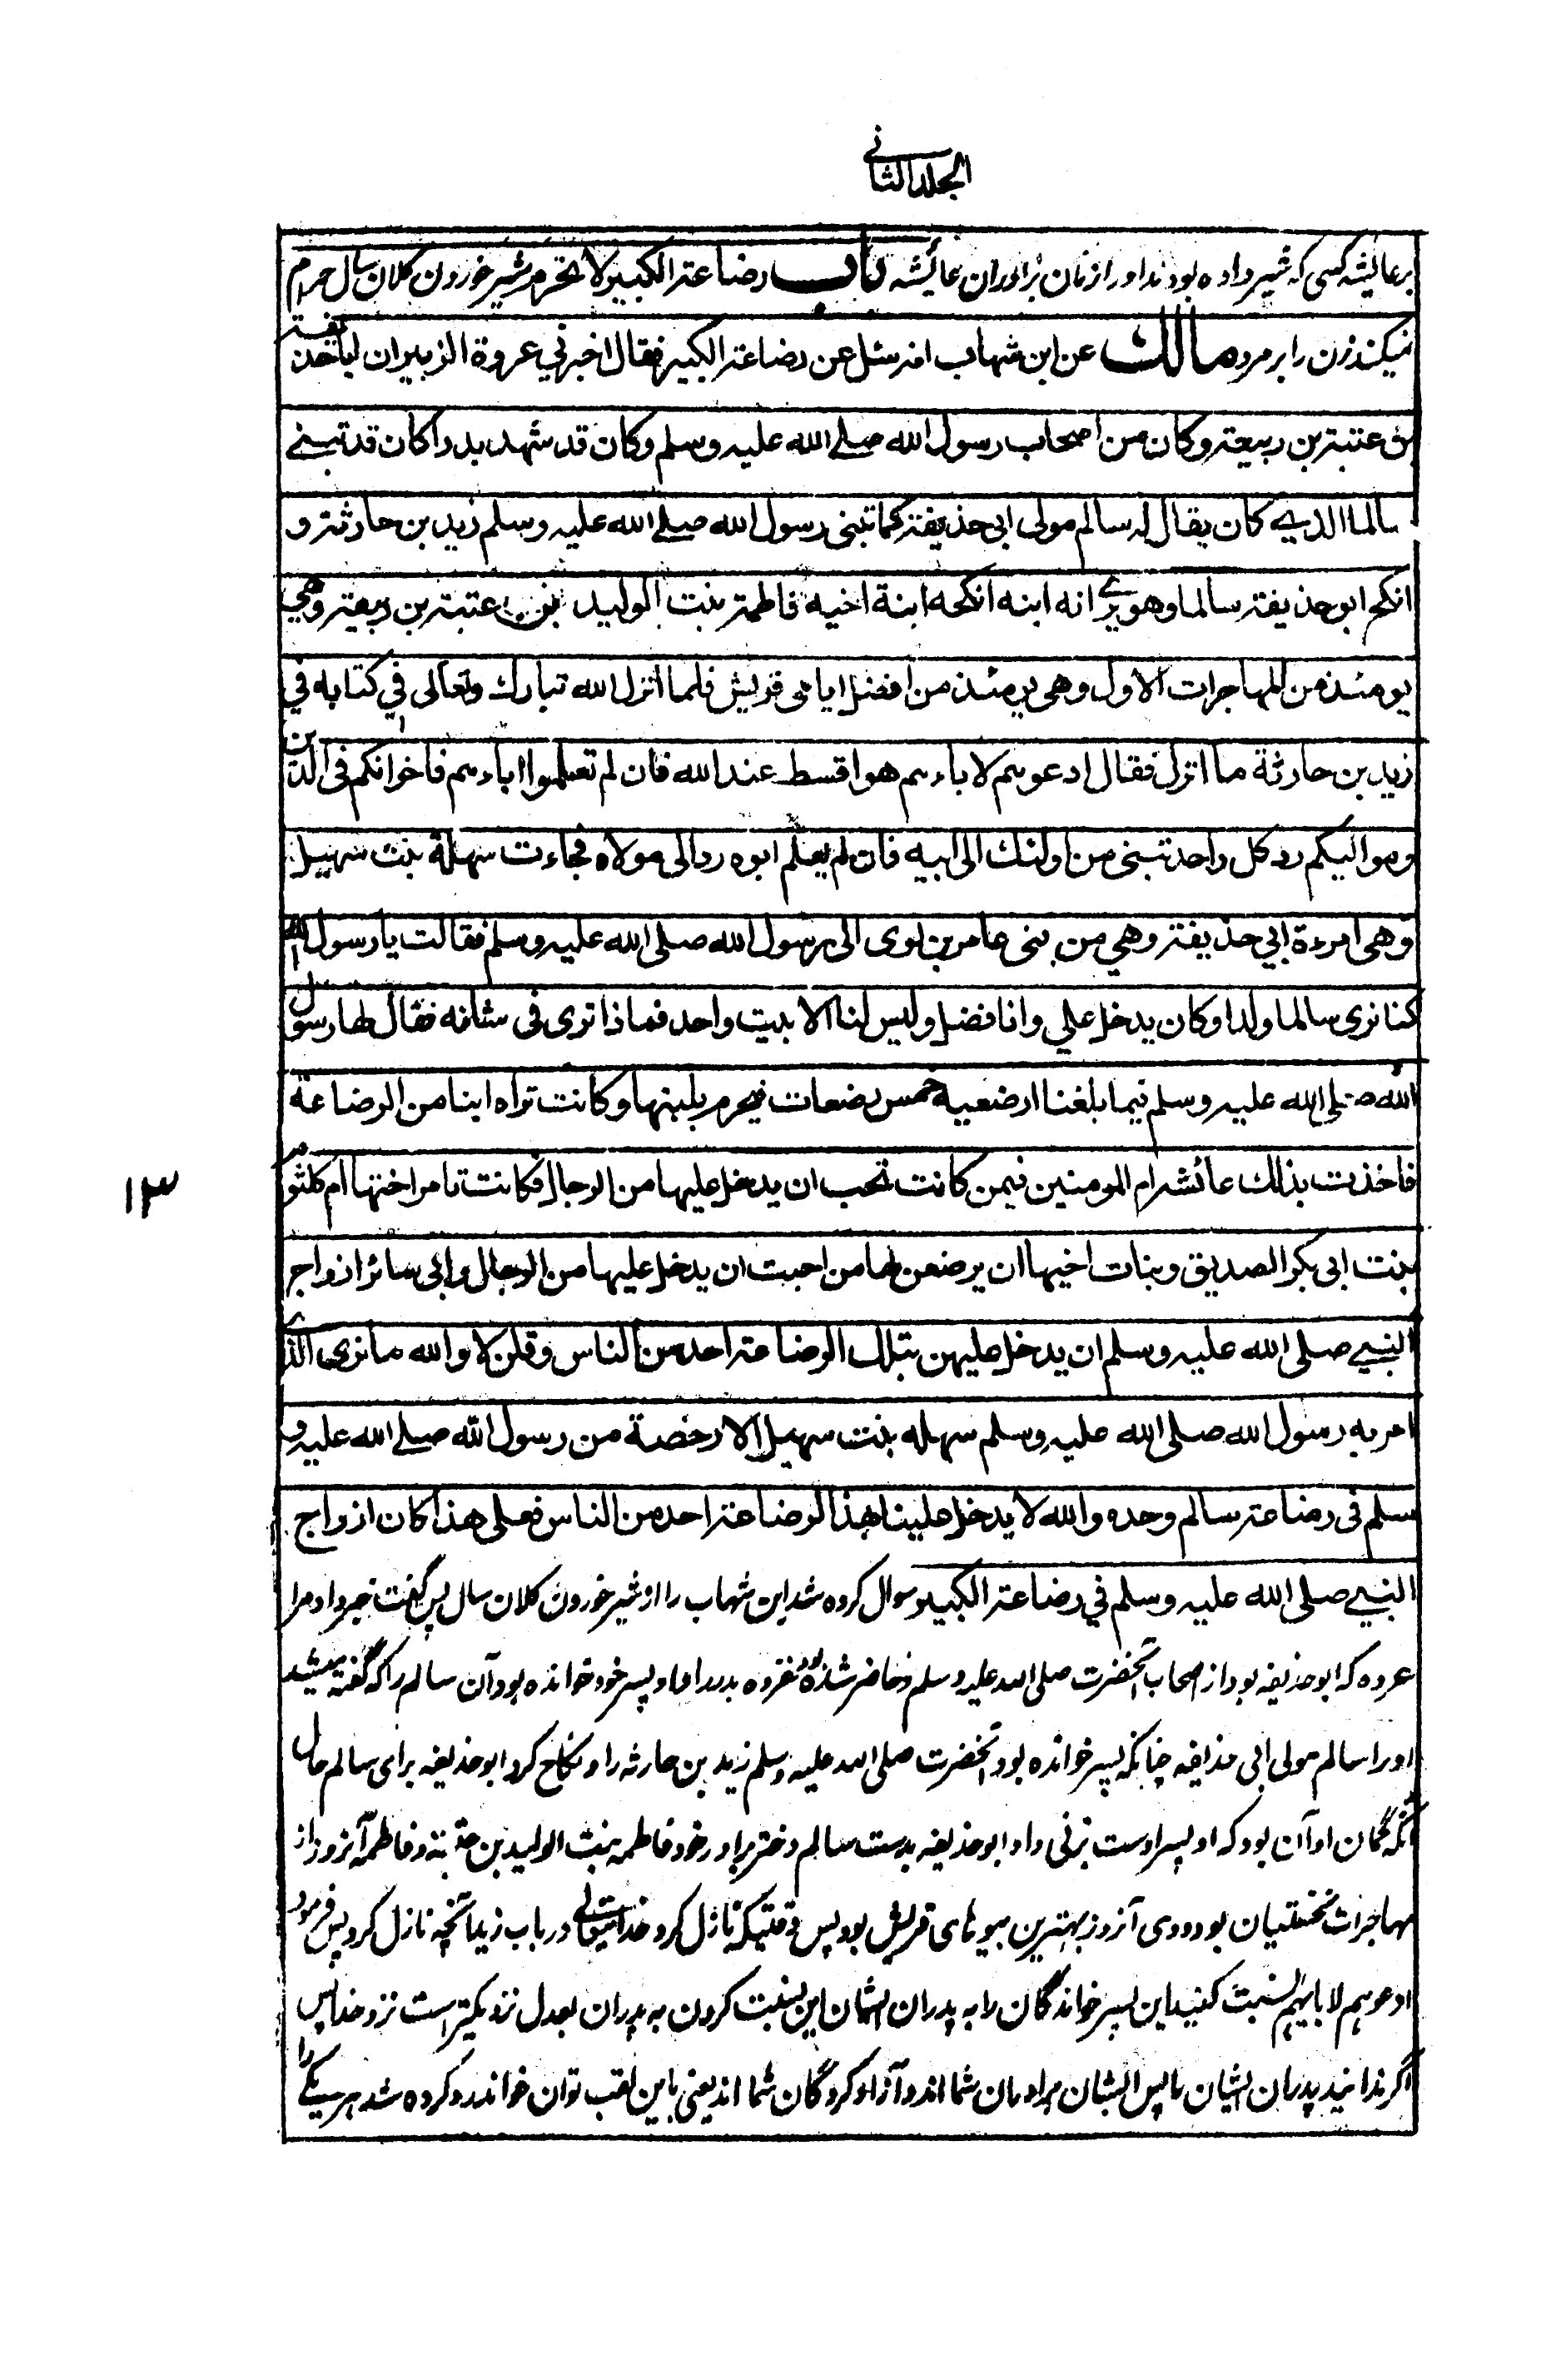 الجلد الثانی
بر عائیشه کسی که شیر داده بودند او را زنان برادران عائیشه باب رضاعة الکبیر لا تحرم شیر خوردن کلان سال حرام
نمیکند زن را بر مرد مالك عن ابن شهاب انه سئل عن رضاعة الکبیر فقال اخبرنی عروة الزبیر ان اباحذیفة
بن عتبة بن ربیعة وکان من اصحاب رسول الله صلے الله علیه وسلم وکان قد شهد بدرا کان قد تبنے
سالما الذے کان یقال له سالم مولی ابی حذیفة کما تبنی رسول الله صلے الله علیه وسلم زید بن حارثة و
انکح ابوحذیفة سالما وهو یرے انه ابنه انکحه ابنة اخیه فاطمة بنت الولید بن عتبة بن ربیعة وهی
یومئذ من المهاجرات الاول وهی یومئذ من افضل ایامی قریش فلما انزل الله تبارك وتعالی فی کتابه فی
زید بن حارثة ما انزل فقال ادعوهم لاباءهم هو اقسط عند الله فان لم تعلموا اباءهم فاخوانکم فی الدین
وموالیکم رد کل واحد تبنی من اولئك الی ابیه فان لم یعلم ابوه رد الی مولاه فجاءت سهلة بنت سهیل
وهی امرءة ابی حذیفة وهی من بنی عامر بن لوی الی رسول الله صلی الله علیه وسلم فقالت یا رسول الله
کنا نری سالما ولدا وکان یدخل علی وانا فضل ولیس لنا الا بیت واحد فماذا تری فی شانه فقال لها رسول
الله صلی الله علیه وسلم فیما بلغنا ارضعیه خمس رضعات فیحرم بلبنها وکانت تراه ابنا من الرضاعة
فاخذت بذلك عائشة ام المومنین فیمن کانت تحب ان یدخل علیها من الرجال فکانت تامر اختها ام کلثوم
۱۳
بنت ابی بکر الصدیق وبنات اخیها ان یرضعن لها من احبت ان یدخل علیها من الرجال وابی سائر ازواج
النبے صلی الله علیه وسلم ان یدخل علیهن بتلك الرضاعة احد من الناس وقلن لا والله ما نری الذی
امر به رسول الله صلی الله علیه وسلم سهله بنت سهیل الا رخصة من رسول الله صلے الله علیه و
سلم فی رضاعة سالم وحده والله لا یدخل علینا بهذا الرضاعة احد من الناس فعلی هذا کان ازواج
النبے صلی الله علیه وسلم فی رضاعة الکبیر سوال کرده شد ابن شهاب را از شیر خوردن کلان سال پس گفت خبر داد مرا
عروه که ابوحذیفه بود از اصحاب آنحضرت صلی الله علیه وسلم و حاضر شده بود غزوه بدر را و او پسر خود خوانده بود آن سالم را که گفته میشد
او را سالم مولی ابی حذایفه چنانکه پسر خوانده بود آنحضرت صلی الله علیه وسلم زید بن حارثه را و نکاح کرد ابوحذیفه برای سالم حال
آنکه گمان او آن بود که او پسر اوست بزنی داد ابوحذیفه بدست سالم دختر برادر خود فاطمه بنت الولید بن عتبة و فاطمه آنروز از
مهاجرات نخستیان بود و وی آنروز بهترین بیوهای قریش بود پس وقتیکه نازل کرد خدایتعالی در باب زید آنچه نازل کرد پس فرمود
ادعوهم لابایهم نسبت کنید این پسر خواندگان را به پدران ایشان این نسبت کردن به پدران بعدل نزدیکتر است نزد خدا پس
اگر ندانید پدران ایشان را پس ایشان برادران شما اند و آزاد کردگان شما اند یعنی باین لقب توان خواند رد کرده شد هر یکے را